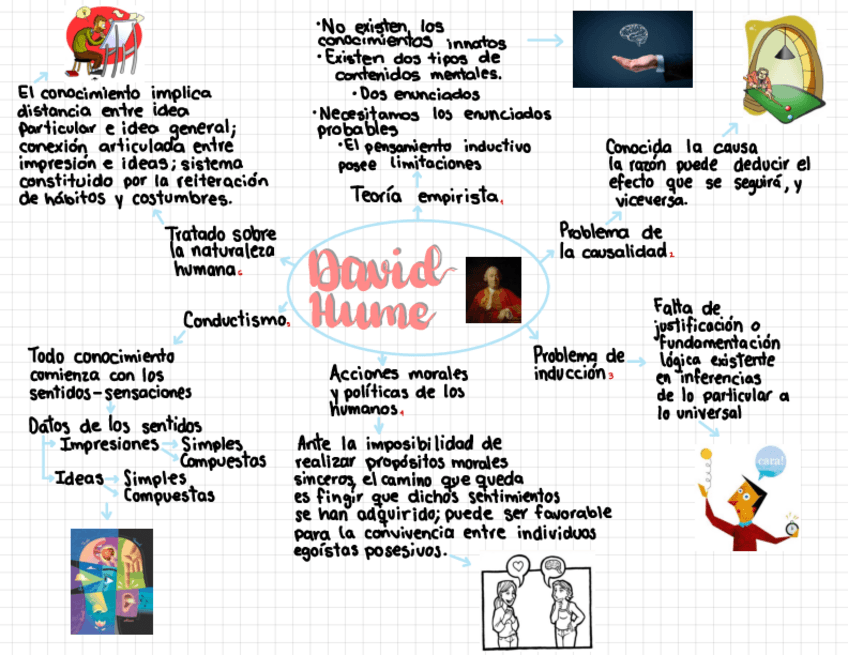 David
Hume
·No existen, los
conocimientos innatos
·Existen dos tipos de
contenidos mentales.
·Dos enunciados
·Necesitamos los enunciados
probables
·El pensamiento inductivo
posee limitaciones
Teoría empirista.
1
Conocida la causa
la razón puede deducir el
efecto que se seguirá, y
viceversa.
Problema de
la causalidad.
2
Problema de
inducción.
3
Falta de
justificación o
fundamentación
lógica existente
en inferencias
de lo particular a
lo universal
cara!
Acciones morales
y políticas de los
humanos.
4
Ante la imposibilidad de
realizar propósitos morales
sinceros, el camino que queda
es fingir que dichos sentimientos
se han adquirido; puede ser favorable
para la convivencia entre individuos
egoístas posesivos.
Conductismo.
5
Todo conocimiento
comienza con los
sentidos-sensaciones
Datos de los sentidos
Impresiones Simples
Compuestas
Ideas Simples
Compuestas
Tratado sobre
la naturaleza
humana.
6
El conocimiento implica
distancia entre idea
particular e idea general;
conexión articulada entre
impresión e ideas; sistema
constituido por la reiteración
de hábitos y costumbres.